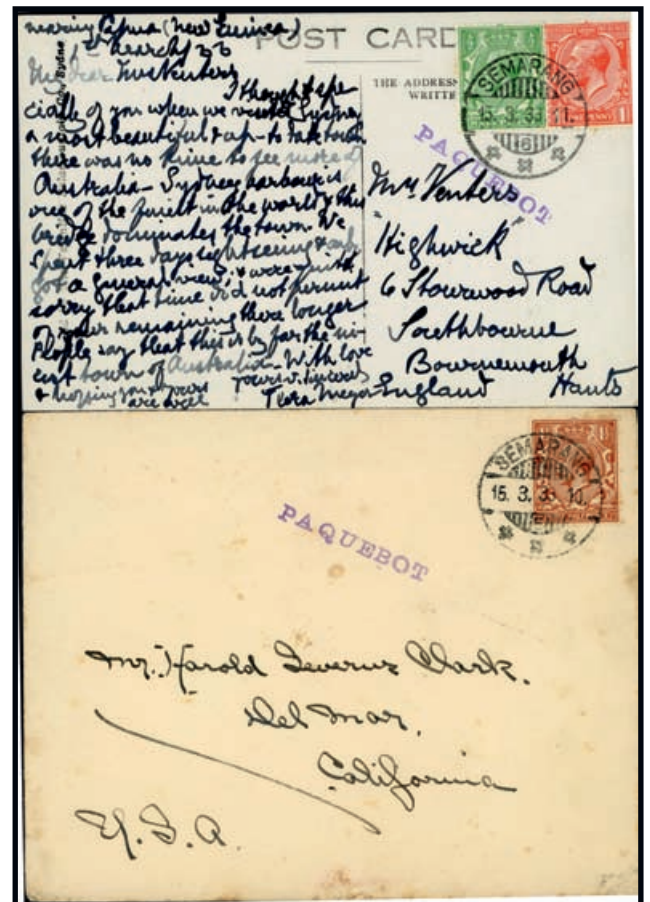 nearing Papua (New Guinea)
1st March / 33
My dear Mrs Venters
I thought espe
cially of you when we visited Sydney,
a most beautiful & up-to-date town
there was no time to see more of
Australia - Sydney harbour is
one of the finest in the world & this
bridge dominates the town. We
spent three days sightseeing &
got a general view, & were quite
sorry that time did not permit
of our remaining there longer
People say that this is by far the ni-
cest town of Australia - With love
& hoping you & yours
are well
yours v. sincerely
Meyer
POST CARD
THE ADDRESS
WRITTE
SEMARANG
15. 3. 33 11.
6
1
PAQUEBOT
Mrs Venters
"Highwick"
6 Stourwood Road
Southbourne
Bournemouth
England Hants
SEMARANG
15. 3. 33 10.
PAQUEBOT
Mr. Harold Clark.
Del Mar,
California
U.S.A.